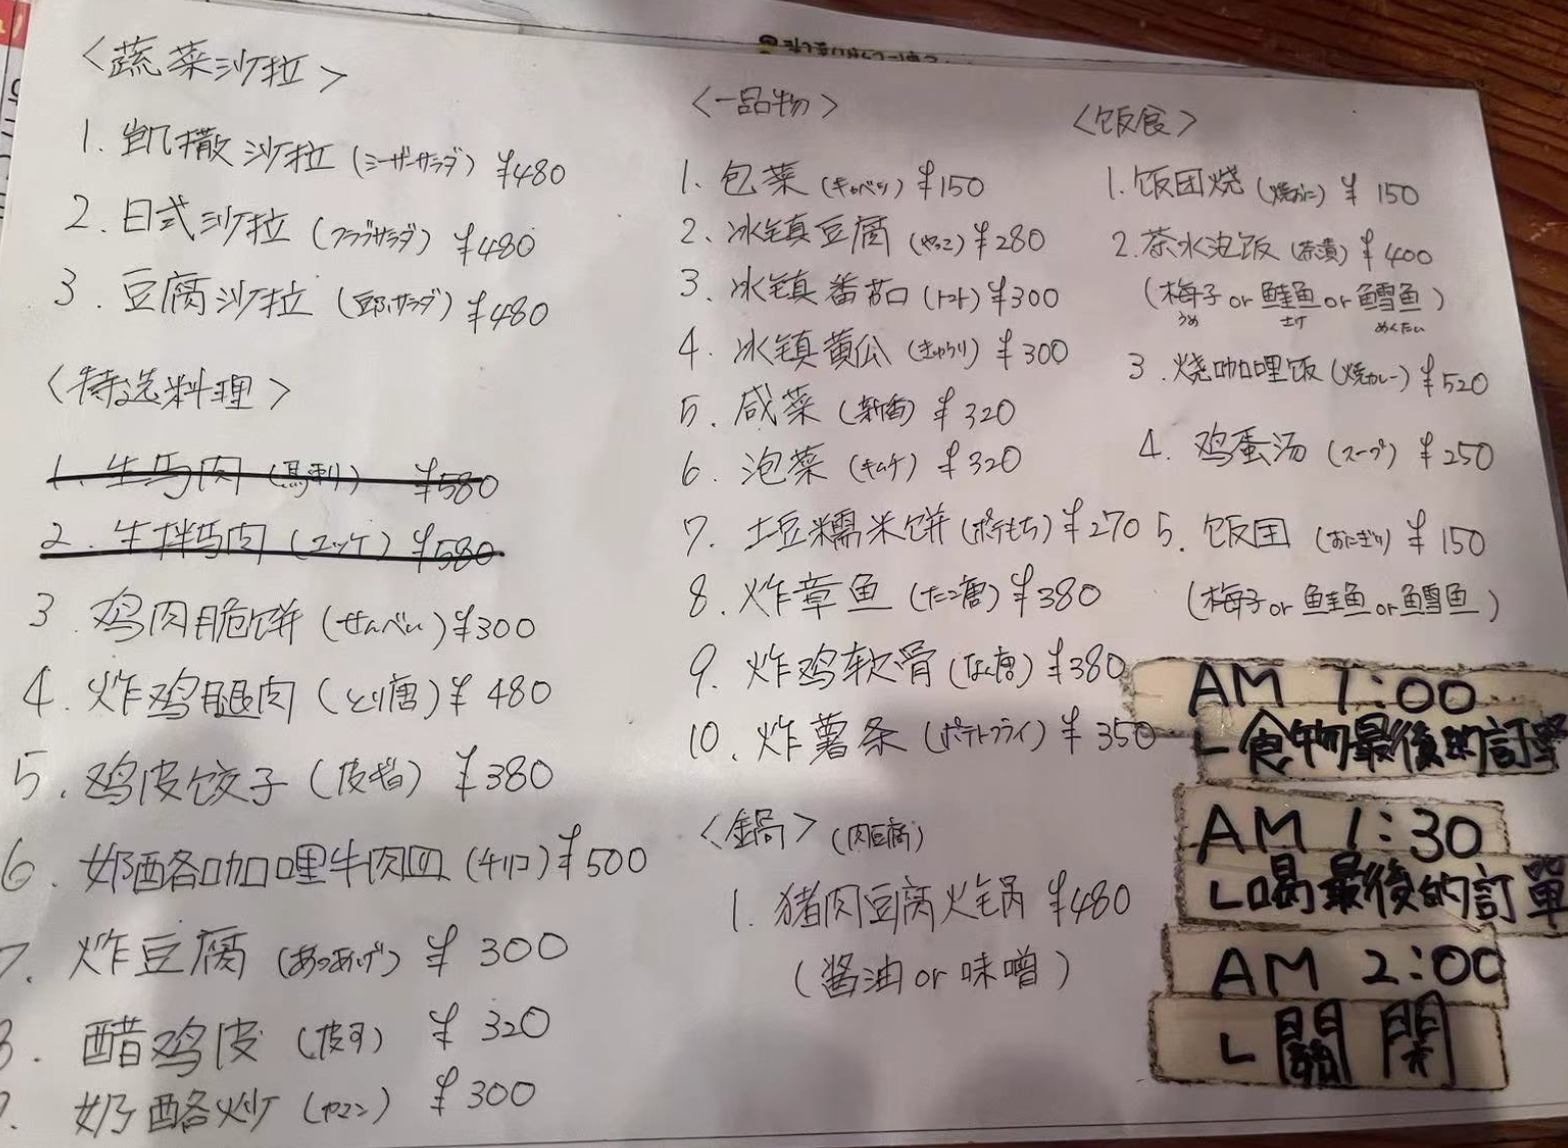 <蔬菜沙拉>
1. 凯撒沙拉 (シーザサラダ) ¥480
2. 日式沙拉 ¥480
3. 豆腐沙拉 (豆腐サラダ) ¥480
<特选料理>
1. 生马肉 (馬刺) ¥580
2. 生拌马肉 (ユッケ) ¥580
3. 鸡肉脆饼 (せんべい) ¥300
4. 炸鸡腿肉 (とり唐) ¥480
5. 鸡皮饺子 ¥380
6. 奶酪咖哩牛肉皿 ¥500
7. 炸豆腐 (あつあげ) ¥300
8. 醋鸡皮 ¥320
奶酪炒 ¥300
<一品物>
1. 包菜 (キャベツ) ¥150
2. 冰镇豆腐 (やっこ) ¥280
3. 冰镇番茄 (トマト) ¥300
4. 冰镇黄瓜 (きゅうり) ¥300
5. 咸菜 (新香) ¥320
6. 泡菜 (キムチ) ¥320
7. 土豆糯米饼 (ポテもち) ¥270
8. 炸章鱼 (たこ唐) ¥380
9. 炸鸡软骨 (なん唐) ¥380
10. 炸薯条 (ポテトフライ) ¥350
<鍋> (肉豆腐)
1. 猪肉豆腐火锅 ¥480
(醤油 or 味噌)
<饭食>
1. 饭团烧 (焼おに) ¥150
2. 茶水泡饭 (茶漬) ¥400
(梅子 or 鲑鱼 or 鳕鱼)
うめ めんたい
3. 烧咖哩饭 (焼カレー) ¥520
4. 鸡蛋汤 (スープ) ¥250
5. 饭团 (おにぎり) ¥150
(梅子 or 鲑鱼 or 鳕鱼)
AM 1:00
L 食物最後的訂單
AM 1:30
L 喝最後的訂單
AM 2:00
L 關開